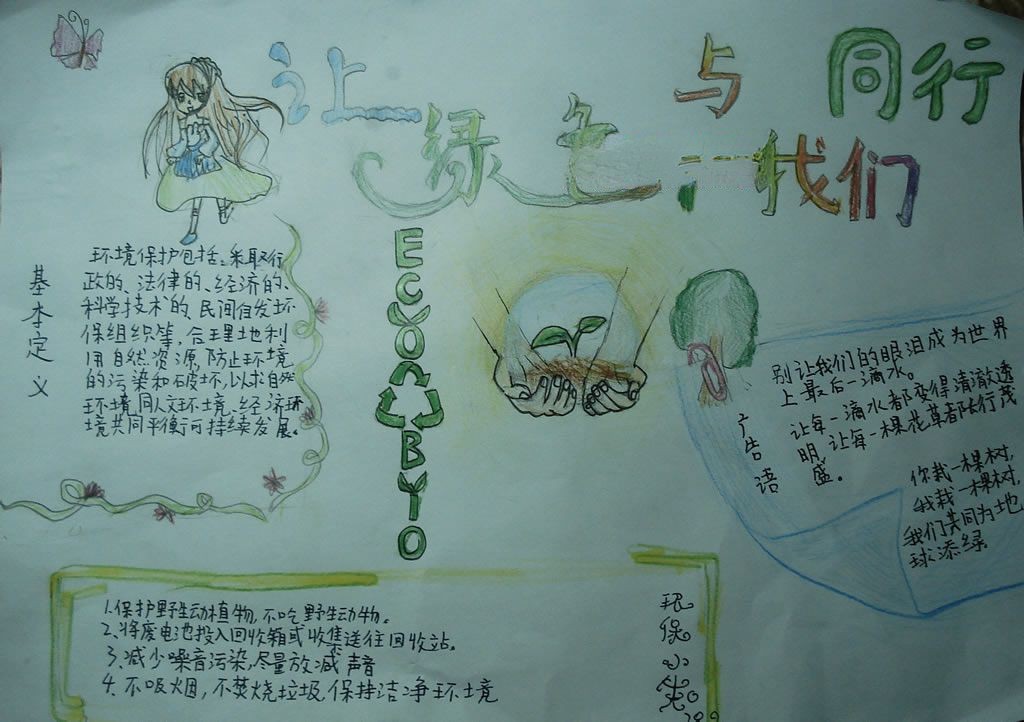 让
绿色
与
我们
同行
基本定义
环境保护包括:采取行
政的、法律的、经济的、
科学技术的、民间自发环
保组织等,合理地利
用自然资源,防止环境
的污染和破坏,以求自然
环境、同人文环境、经济环
境共同平衡可持续发展。
ECO
BYIO
广告语
别让我们的眼泪成为世界
上最后一滴水。
让每一滴水都变得清澈透
明,让每一棵花草都长行茂
盛。
你栽一棵树,
我栽一棵树,
我们共同为地
球添绿
1.保护野生动植物,不吃野生动物。
2、将废电池投入回收箱或收集送往回收站。
3、减少噪音污染,尽量放减声音
4、不吸烟,不焚烧垃圾,保持洁净环境
环保小